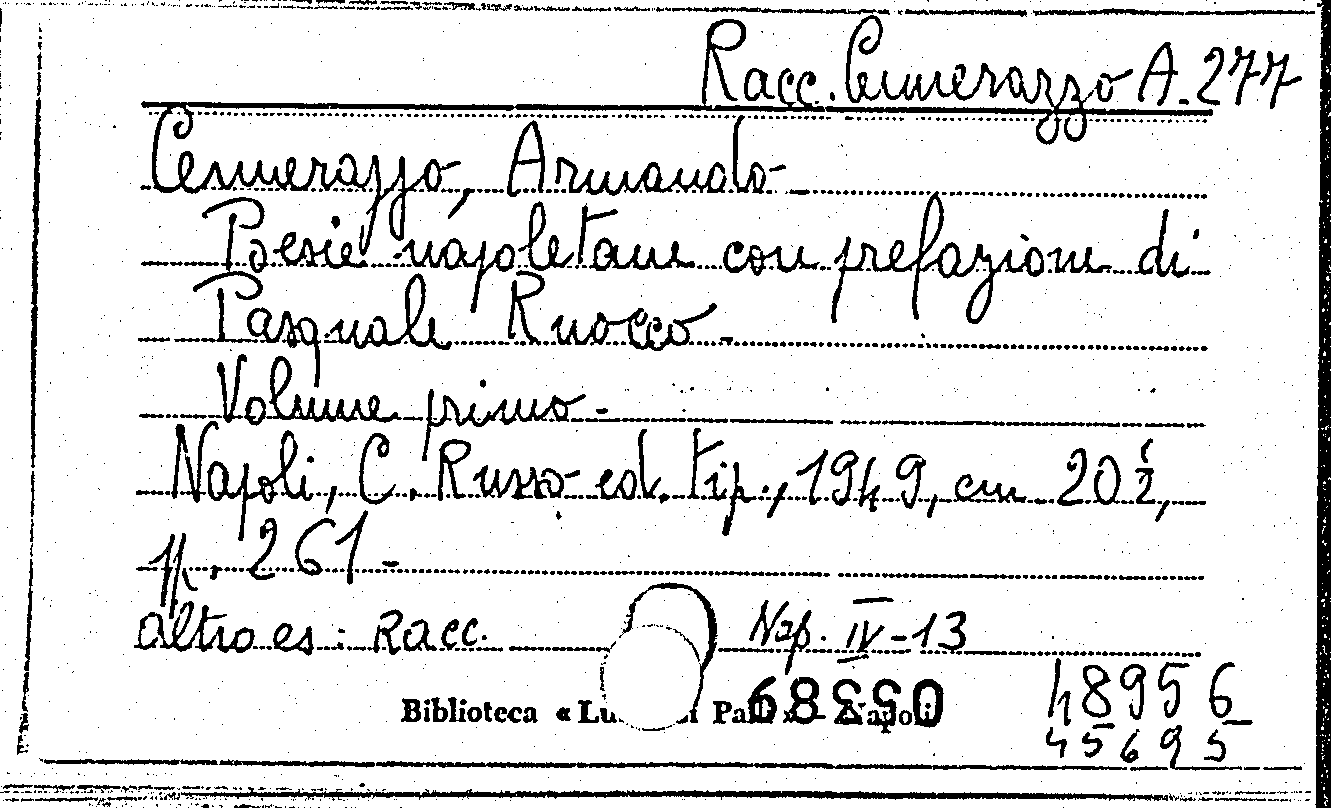 Racc. Cennerazzo A. 277
Cennerazzo, Armando
Poesie napoletane con prefazione di
Pasquale Ruocco -
Volume primo -
Napoli, C. Russo ed. tip., 1949, cm 20 ½,
pp. 261 -
altro es: Racc. Nap. IV-13
48956
Biblioteca « Lu Pa » - Napoli
45695